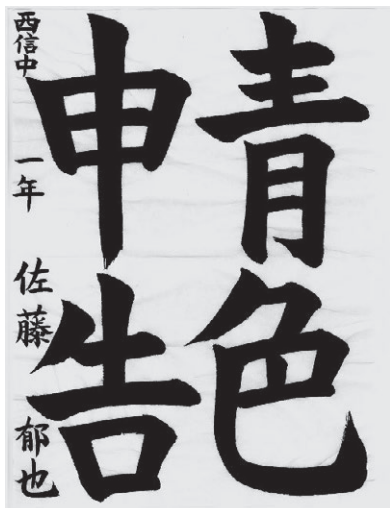 青色
申告
西信中 一年 佐藤 郁也